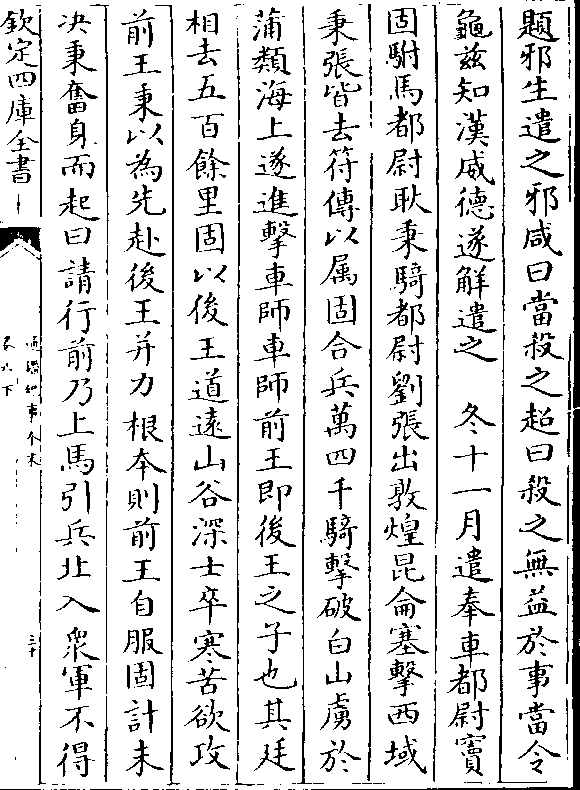 題邪生遣之邪咸曰當殺之超曰殺之無益於事當令
龜兹知漢威德遂解遣之　冬十一月遣奉車都尉竇
固駙馬都尉耿秉騎都尉劉張出敦煌昆侖塞擊西域
秉張皆去符傳以屬固合兵萬四千騎擊破白山虜於
蒲類海上遂進擊車師車師前王即後王之子也其廷
相去五百餘里固以後王道遠山谷深士卒寒苦欲攻
前王秉以為先赴後王并力根本則前王自服固計未
决秉奮身而起曰請行前乃上馬引兵北入衆軍不得
欽定四庫全書
通鑑紀事本末
卷六下
三十